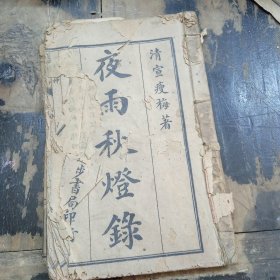 清宣瘦梅著
夜雨秋燈錄
步書局印